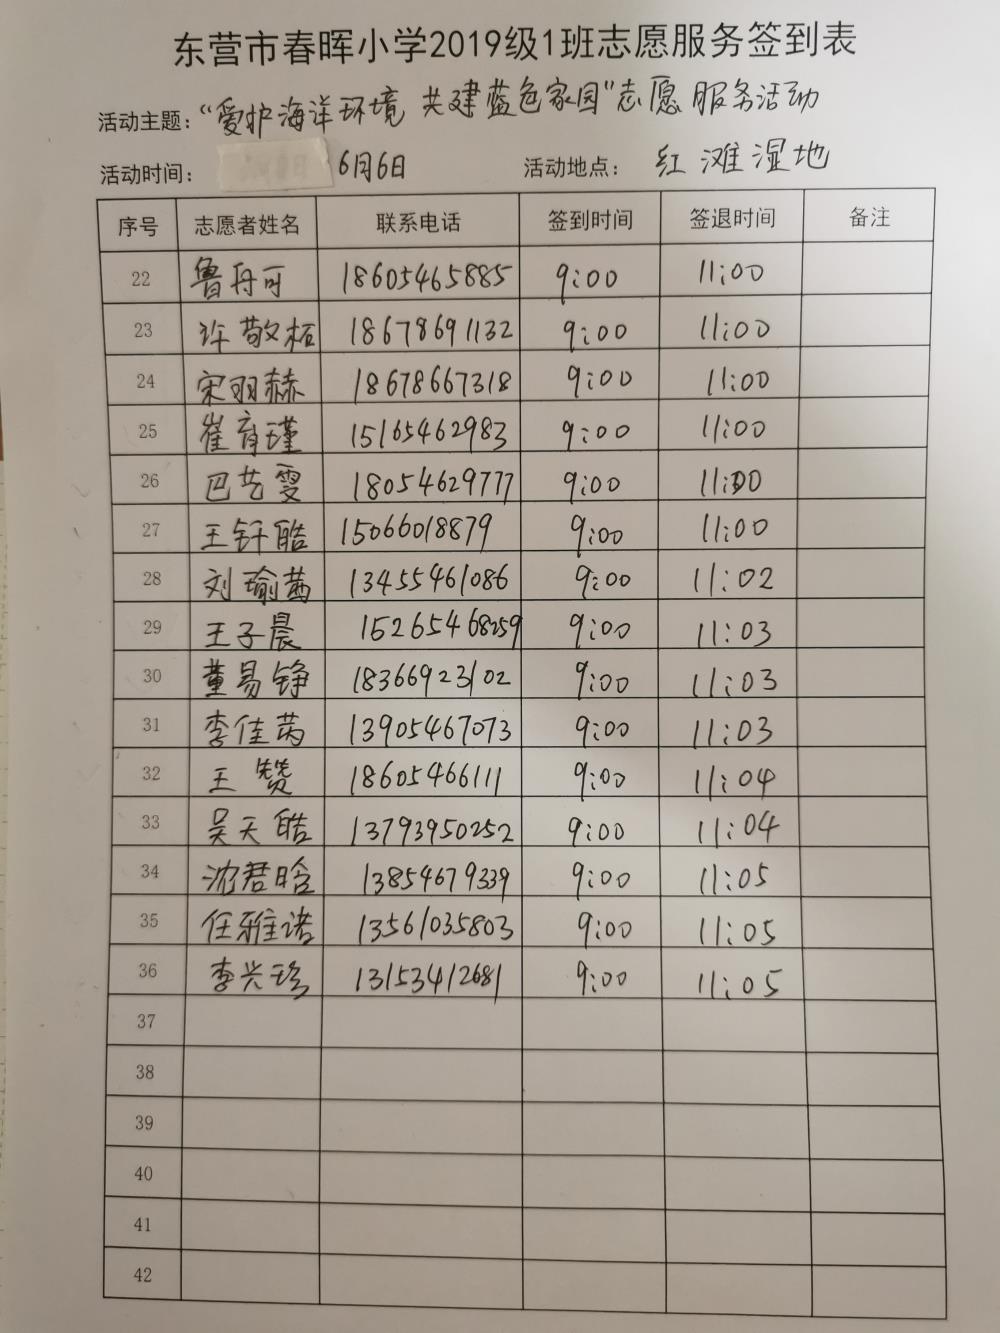 东营市春晖小学2019级1班志愿服务签到表
活动主题：“爱护海洋环境 共建蓝色家园”志愿服务活动
活动时间： 6月6日 活动地点： 红滩湿地
序号 志愿者姓名 联系电话 签到时间 签退时间 备注
22 鲁舟可 18605465885 9:00 11:00
23 许敬栢 18678691132 9:00 11:00
24 宋羽赫 18678667318 9:00 11:00
25 崔育瑾 15165462983 9:00 11:00
26 巴艺雯 18054629777 9:00 11:00
27 王钎皓 15066018879 9:00 11:00
28 刘瑜茜 13455461086 9:00 11:02
29 王子晨 15265468259 9:00 11:03
30 董易铮 18366923102 9:00 11:03
31 李佳芮 13905467073 9:00 11:03
32 王赞 18605466111 9:00 11:04
33 吴天皓 13793950252 9:00 11:04
34 沈君晗 13854679339 9:00 11:05
35 任雅诺 13561035803 9:00 11:05
36 李兴珍 13153412681 9:00 11:05
37
38
39
40
41
42